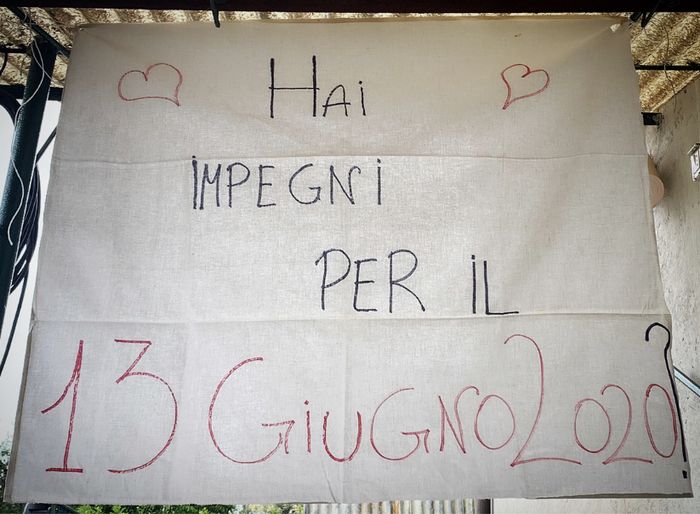 Hai
IMPEGNI
PER IL
13 GIUGNO 2020?